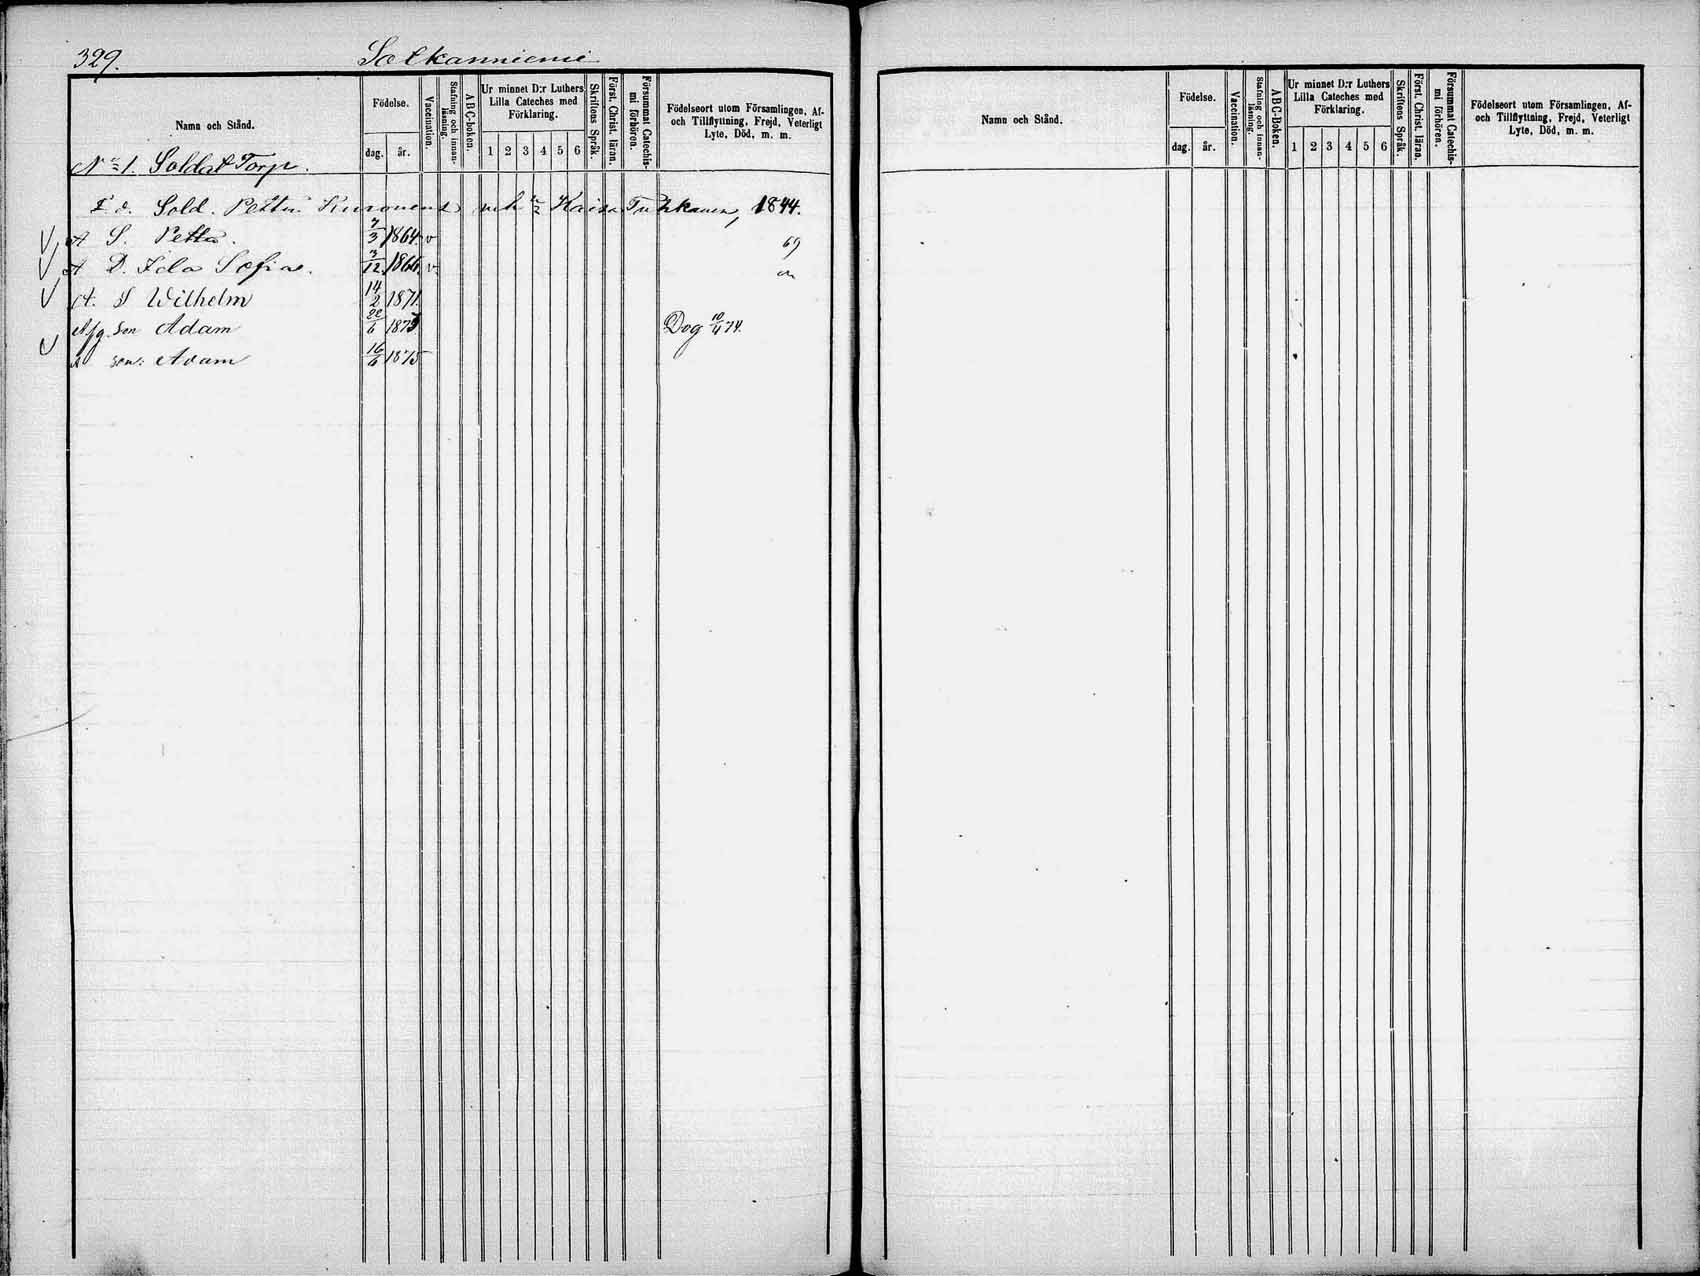 329. Salkanniemi
Namn och Stånd.
Födelse.
dag. år.
Vaccination.
Stafning och innanläsning.
ABC-boken.
Ur minnet D:r Luthers
Lilla Cateches med
Förklaring.
1 2 3 4 5 6
Skriftens Språk.
Först. Christ. läran.
Försummat Catechismi förhören.
Födelseort utom Församlingen, Af-
och Tillflyttning, Frejd, Veterligt
Lyte, Död, m. m.
No 1. Soldat Torp.
F. d. Sold. Petter Kuronens och Kaisa Tuhkanen, 1844.
A S. Petter. 7/3 1864 v 69
A D. Ida Sofia. 3/12 1866 v
A. S Wilhelm 14/2 1871.
Afg. Son Adam 22/6 1873 Dog 10/4 74.
A son: Adam 16/6 1875
Namn och Stånd.
Födelse.
dag. år.
Vaccination.
Stafning och innanläsning.
ABC-Boken.
Ur minnet D:r Luthers
Lilla Cateches med
Förklaring.
1 2 3 4 5 6
Skriftens Språk.
Först. Christ. läran.
Försummat Catechismi förhören.
Födelseort utom Församlingen, Af-
och Tillflyttning, Frejd, Veterligt
Lyte, Död, m. m.